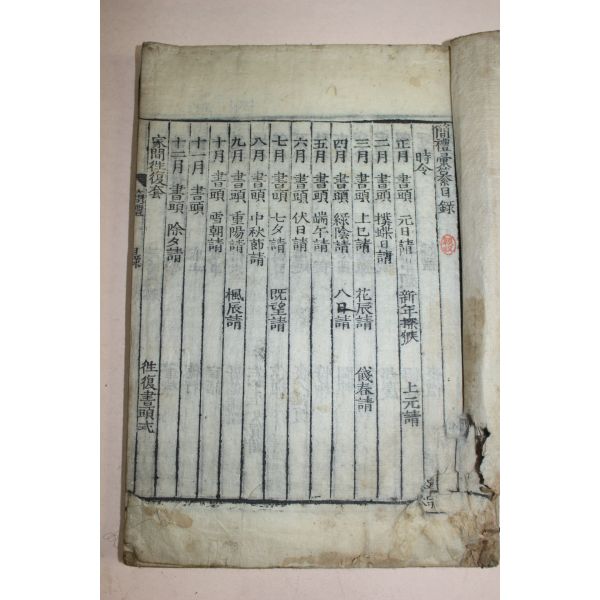 簡禮彙纂目錄
時令
正月 書頭 元日請 新年探候 上元請
二月 書頭 撲蝶日請
三月 書頭 上巳請 花辰請 餞春請
四月 書頭 綠陰請 八日請
五月 書頭 端午請
六月 書頭 伏日請
七月 書頭 七夕請 旣望請
八月 書頭 中秋節請
九月 書頭 重陽請 楓辰請
十月 書頭 雪朝請
十一月 書頭
十二月 書頭 除夕請
家間徃復套 徃復書頭式
簡禮 目錄